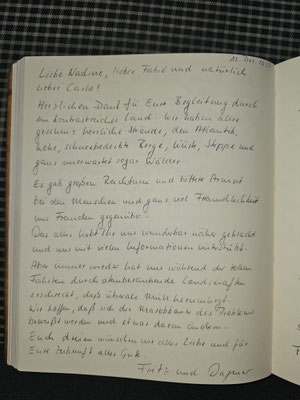 Liebe Nadine, lieber Fabié und natürlich
lieber Carlo!
Herzlichen Dank für Eure Begleitung durch
ein kontrastreiches Land. Wir haben alles
gesehen: herrliche Strände, den Atlantik,
hohe, schneebedeckte Berge, Wüste, Steppe und
ganz unerwartet sogar Wälder.
Es gab großen Reichtum und bittere Armut
bei den Menschen und ganz viel Freundlichkeit
uns Fremden gegenüber.
Das alles habt Ihr uns wunderbar näher gebracht
und uns mit vielen Informationen unterstützt.
Aber immer wieder hat uns während der
Fahrten durch atemberaubende Landschaften
erschreckt, daß überall Müll herumliegt.
Wir hoffen, daß sich die Marokkaner des Problems
bewußt werden und etwas daran ändern.
Euch dreien wünschen wir alles Liebe und für
Eure Zukunft alles Gute.
Fritz und Dagmar